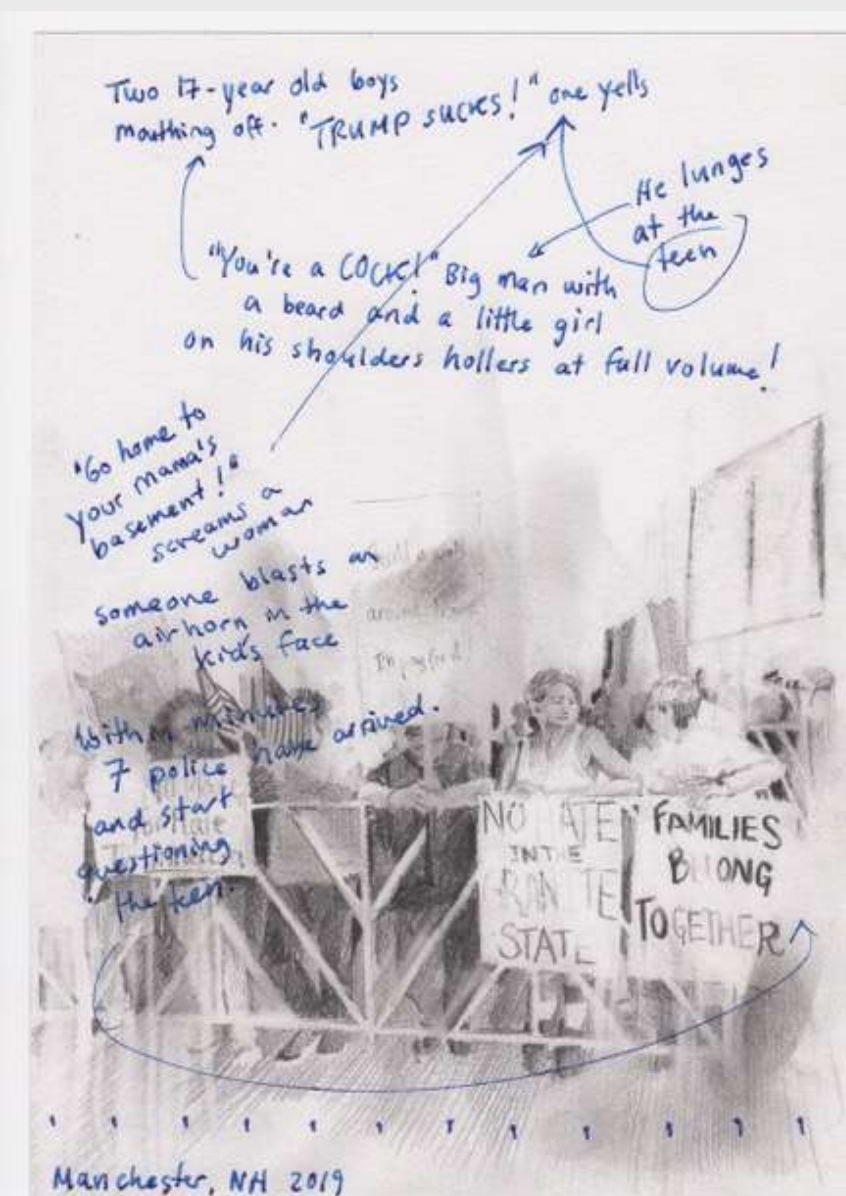 Two 17-year old boys
mouthing off. "TRUMP SUCKS!" one yells
He lunges
at the
teen
"You're a COCK!" Big man with
a beard and a little girl
on his shoulders hollers at full volume!
"Go home to
your mama's
basement!"
screams a
woman
someone blasts an
airhorn in the
kid's face
Within minutes
7 police have arrived.
and start
questioning
the teen.
around
NO HATE
IN THE
GRANITE
STATE
FAMILIES
BELONG
TOGETHER
Manchester, NH 2019